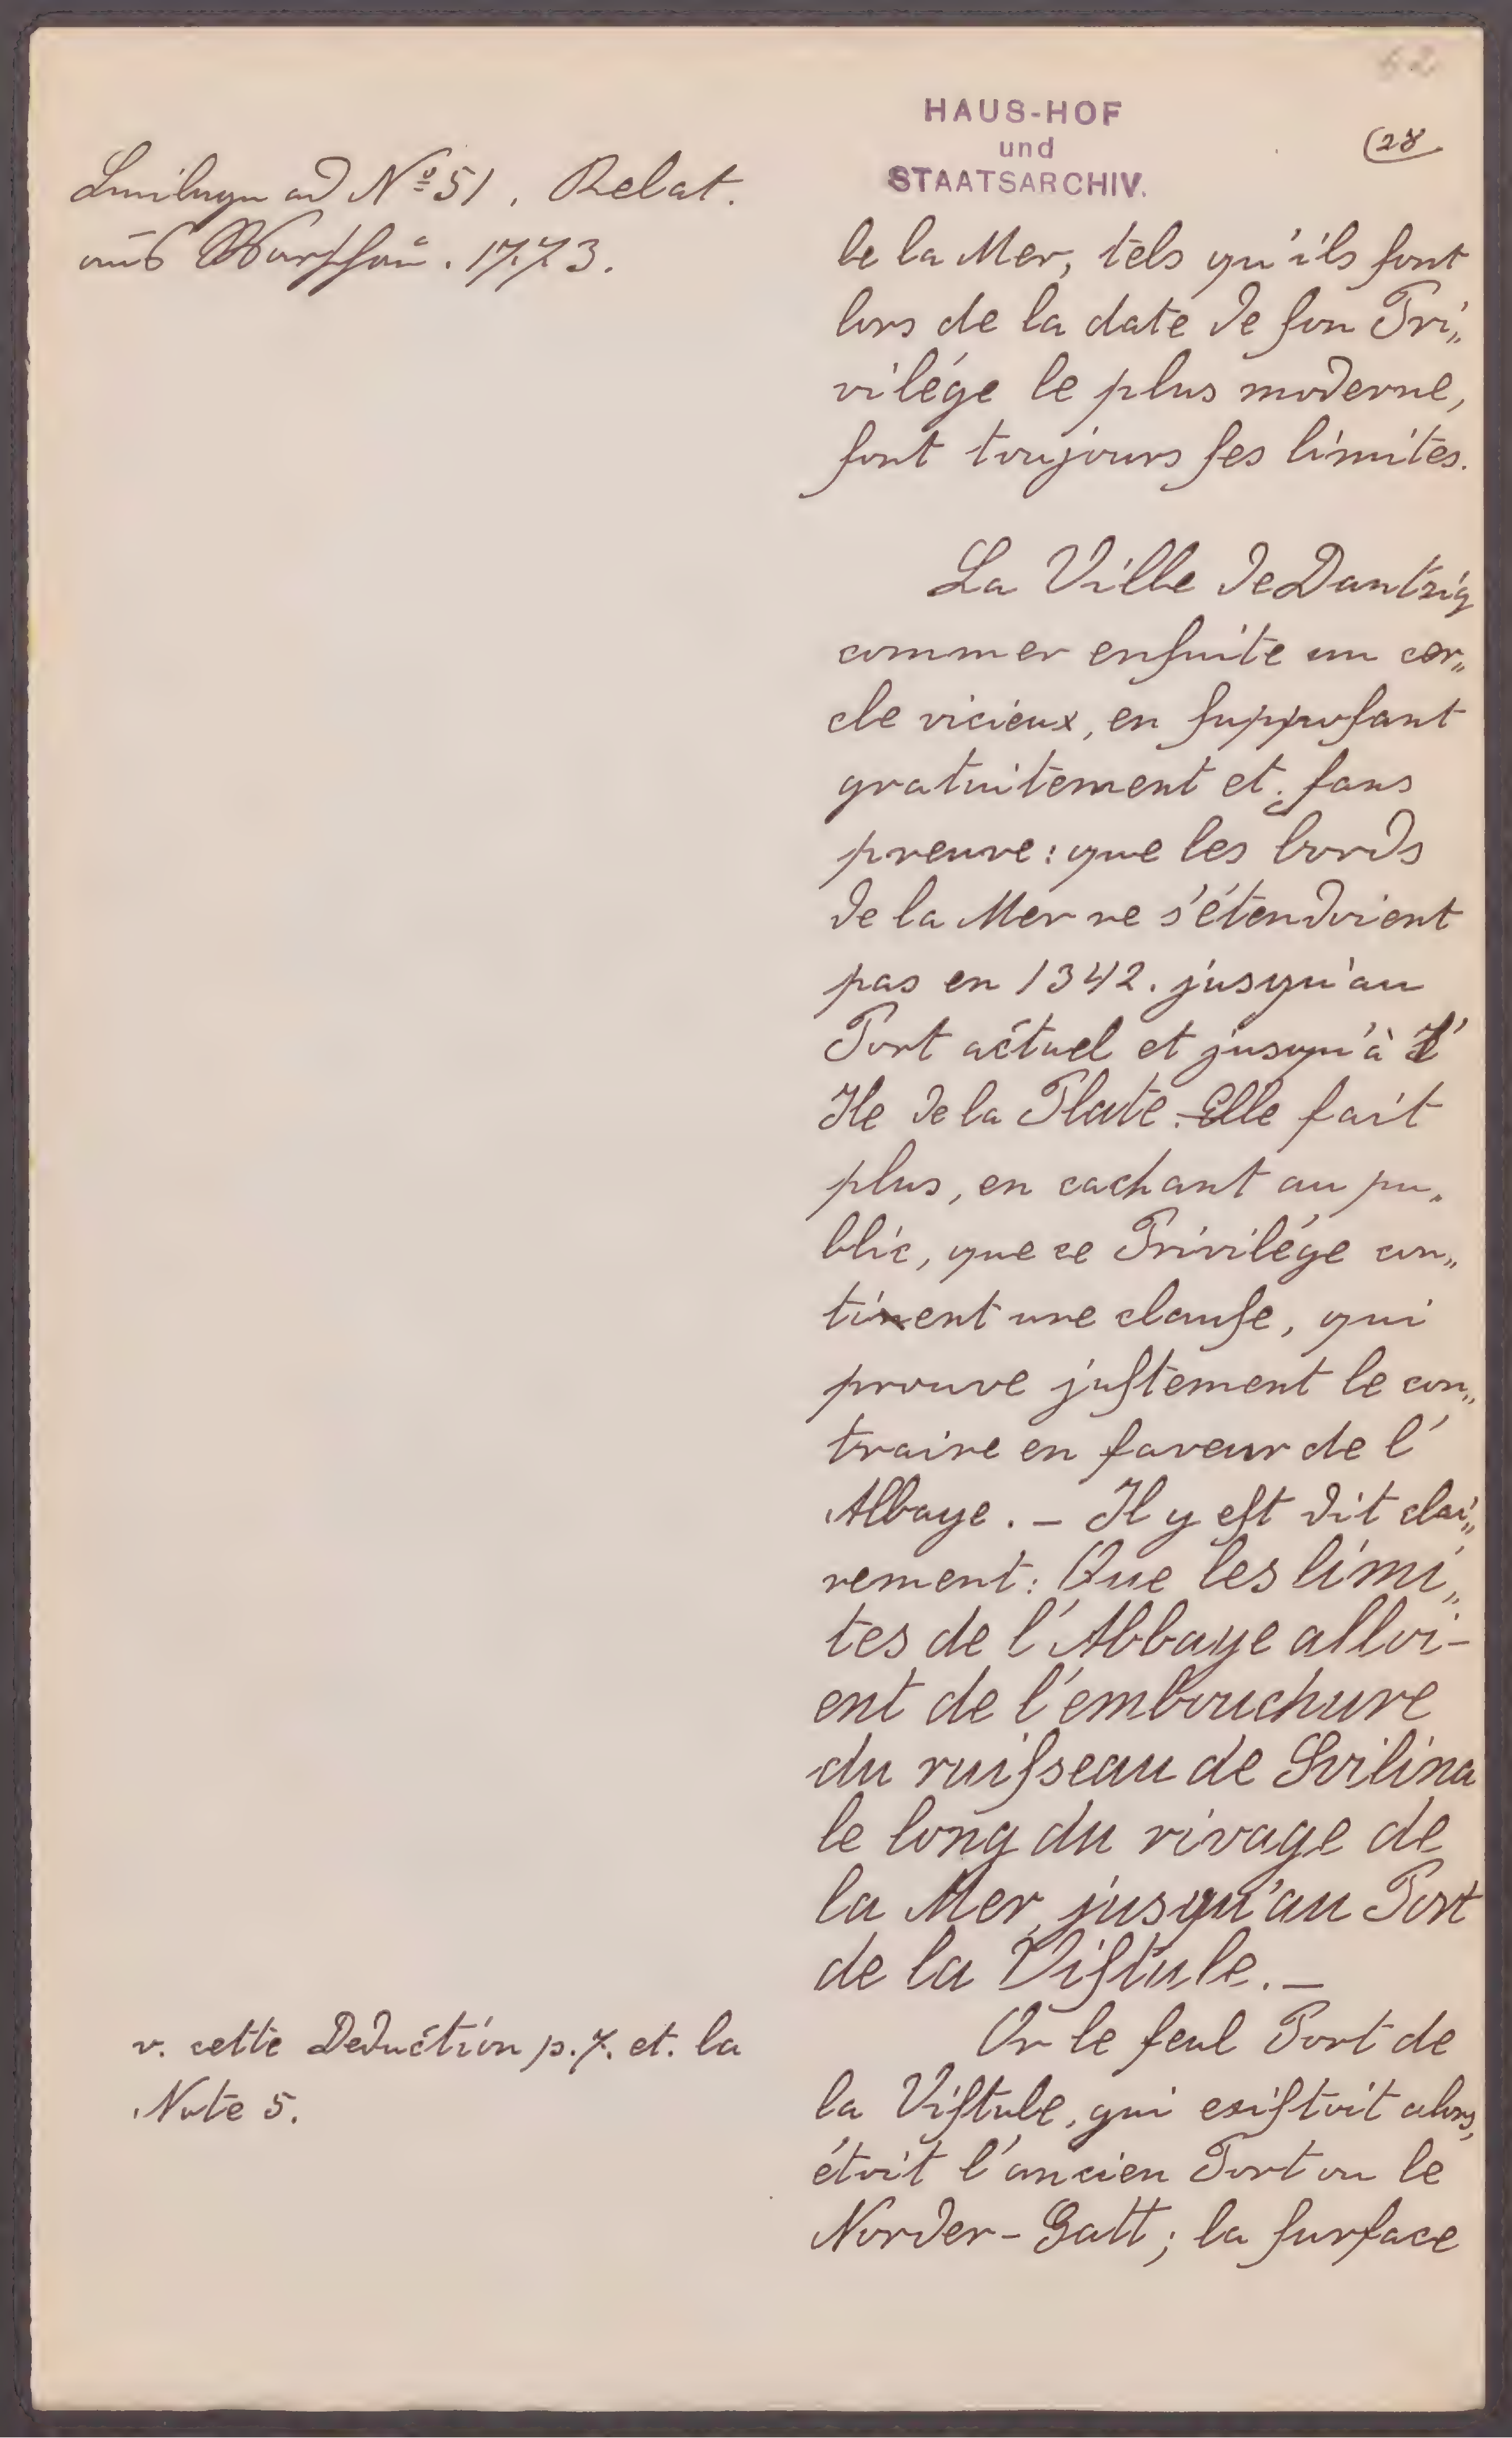 62
HAUS-HOF
und
STAATSARCHIV.
(28
ad Nº 51. Relat.
aus Warschau. 1773.
be la Mer, tels qu'ils sont
lors de la date de son Pri„
vilége le plus moderne,
sont toujours ses limites.
La Ville de Dantzig
commer ensuite un cer„
cle vicieux, en supposant
gratuitement et sans
preuve: que les bords
de la Mer ne s'étendoient
pas en 1342. jusqu'au
Port actuel et jusqu'à l'
Ile de la Plate. Elle fait
plus, en cachant au pu„
blic, que ce Privilége con„
tinent une clause, qui
prouve justement le con„
traire en faveur de l'
Abbaye. – Il y est dit clai„
rement: Que les limi„
tes de l'Abbaye alloi-
ent de l'embouchure
du ruisseau de Svilina
le long du rivage de
la Mer, jusqu'au Port
de la Vistule. –
v. cette Deduction p. 7. et. la
Note 5.
Or le seul Port de
la Vistule, qui existoit alors,
étoit l'ancien Port ou le
Norder-Gatt; la surface